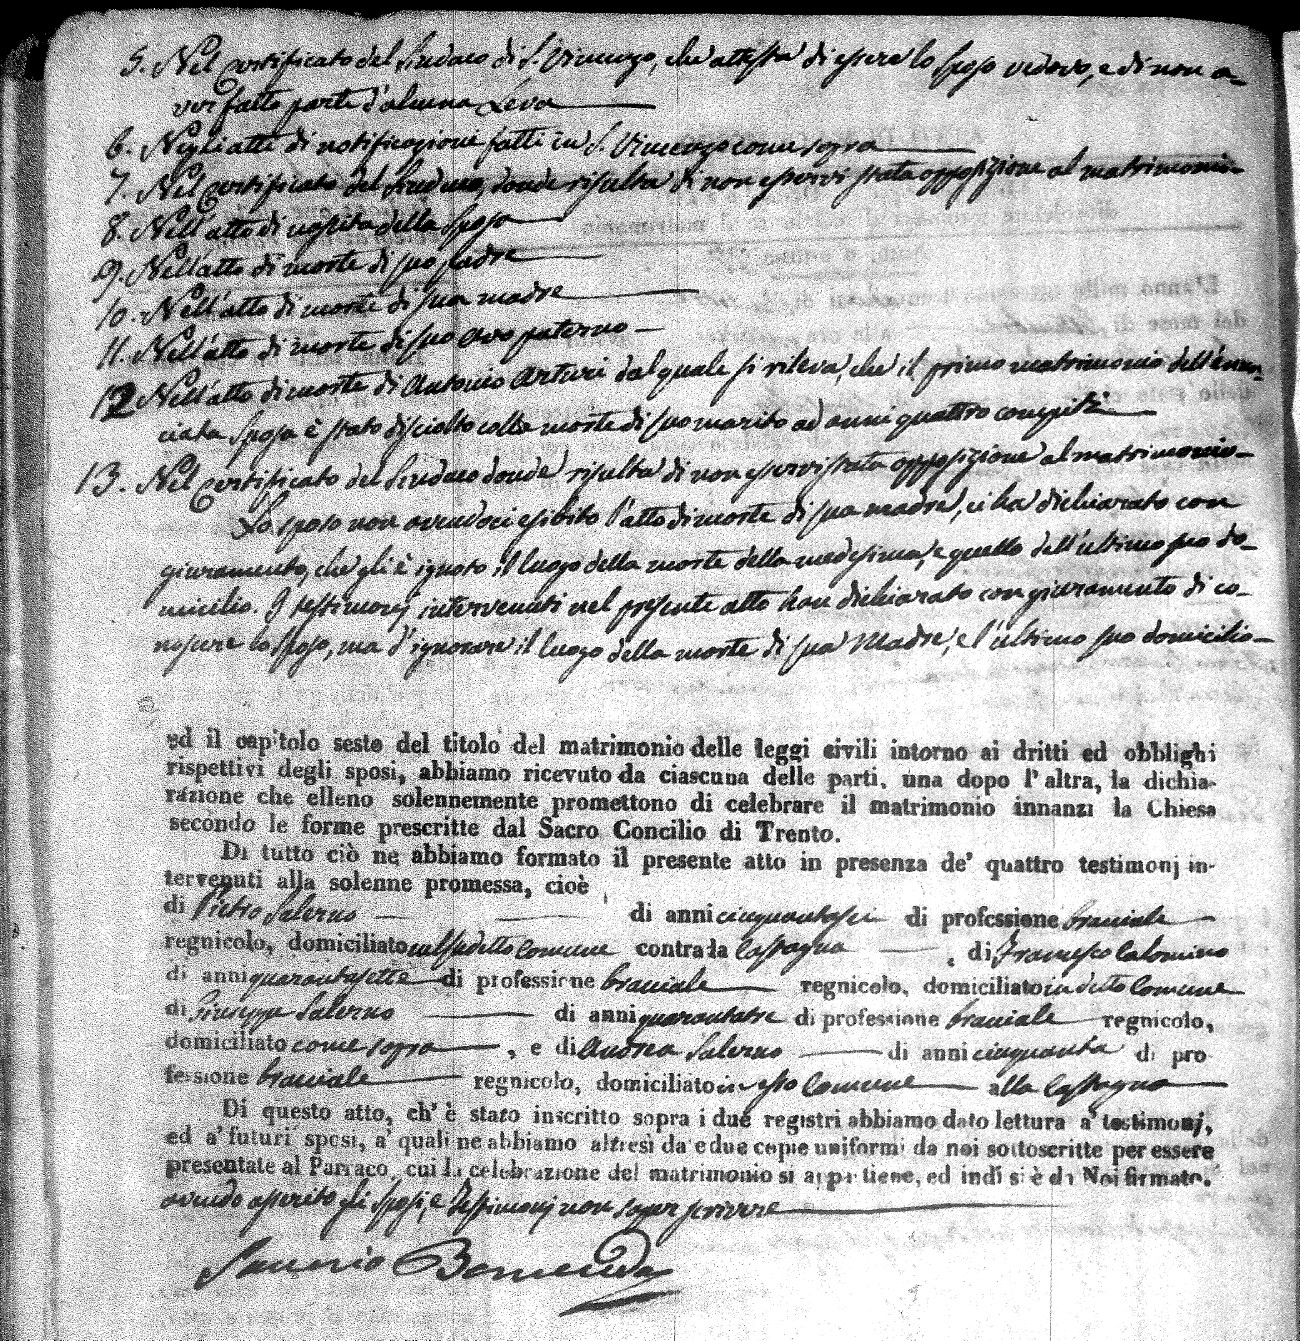 5. Nel Certificato del Sindaco di S. Vincenzo, che attesta di essere lo sposo vedovo, e di non a-
ver fatto parte d'alcuna Leva
6. Negli atti di notificazione fatti in S. Vincenzo come sopra
7. Nel Certificato del Sindaco, donde risulta di non esservi stata opposizione al matrimonio
8. Nell'atto di nascita della sposa
9. Nell'atto di morte di suo padre
10. Nell'atto di morte di sua madre
11. Nell'atto di morte di suo avo paterno
12 Nell'atto di morte di Antonio Arturi dal quale si rileva, che il primo matrimonio dell'enun-
ciata sposa è stato disciolto colla morte di suo marito ad anni quattro compiti
13. Nel Certificato del Sindaco donde risulta di non esservi stata opposizione al matrimonio
Lo sposo non avendoci esibito l'atto di morte di sua madre, ci ha dichiarato con
giuramento, che gli è ignoto il luogo della morte della medesima, e quello dell'ultimo suo do-
micilio. I testimonj intervenuti nel presente atto han dichiarato con giuramento di co-
noscere lo sposo, ma d'ignorare il luogo della morte di sua Madre, e l'ultimo suo domicilio
ed il capitolo sesto del titolo del matrimonio delle leggi civili intorno ai dritti ed obblighi
rispettivi degli sposi, abbiamo ricevuto da ciascuna delle parti, una dopo l'altra, la dichia-
razione che elleno solennemente promettono di celebrare il matrimonio innanzi la Chiesa
secondo le forme prescritte dal Sacro Concilio di Trento.
Di tutto ciò ne abbiamo formato il presente atto in presenza de' quattro testimonj in-
tervenuti alla solenne promessa, cioè
di Pietro Salerno di anni cinquantasei di professione bracciale
regnicolo, domiciliato nel sudetto Comune contrada Castagna , di Francesco Calomino
di anni quarantasette di professione bracciale regnicolo, domiciliato in detto Comune
di Giuseppe Salerno di anni quarantatre di professione bracciale regnicolo,
domiciliato come sopra , e di Andrea Salerno di anni cinquanta di pro
fessione bracciale regnicolo, domiciliato in esso Comune alla Castagna
Di questo atto, ch' è stato inscritto sopra i due registri abbiamo dato lettura a' testimonj,
ed a' futuri sposi, a' quali ne abbiamo altresì date due copie uniformi da noi sottoscritte per essere
presentate al Parroco, cui la celebrazione del matrimonio si appartiene, ed indi si è da Noi firmato.
avendo asserito gli sposi, e testimonj non saper scrivere